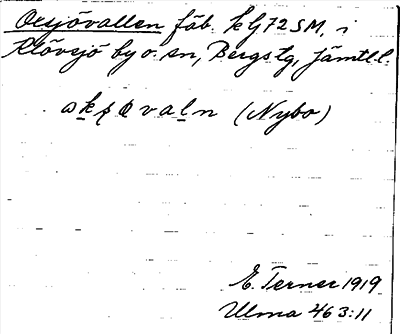 Oxsjövallen fäb. kG72SM, i
Klövsjö by o. sn, Bergs tg, Jämtl.l.
(Nybo)
E. Terner 1919
Ulma 463:11